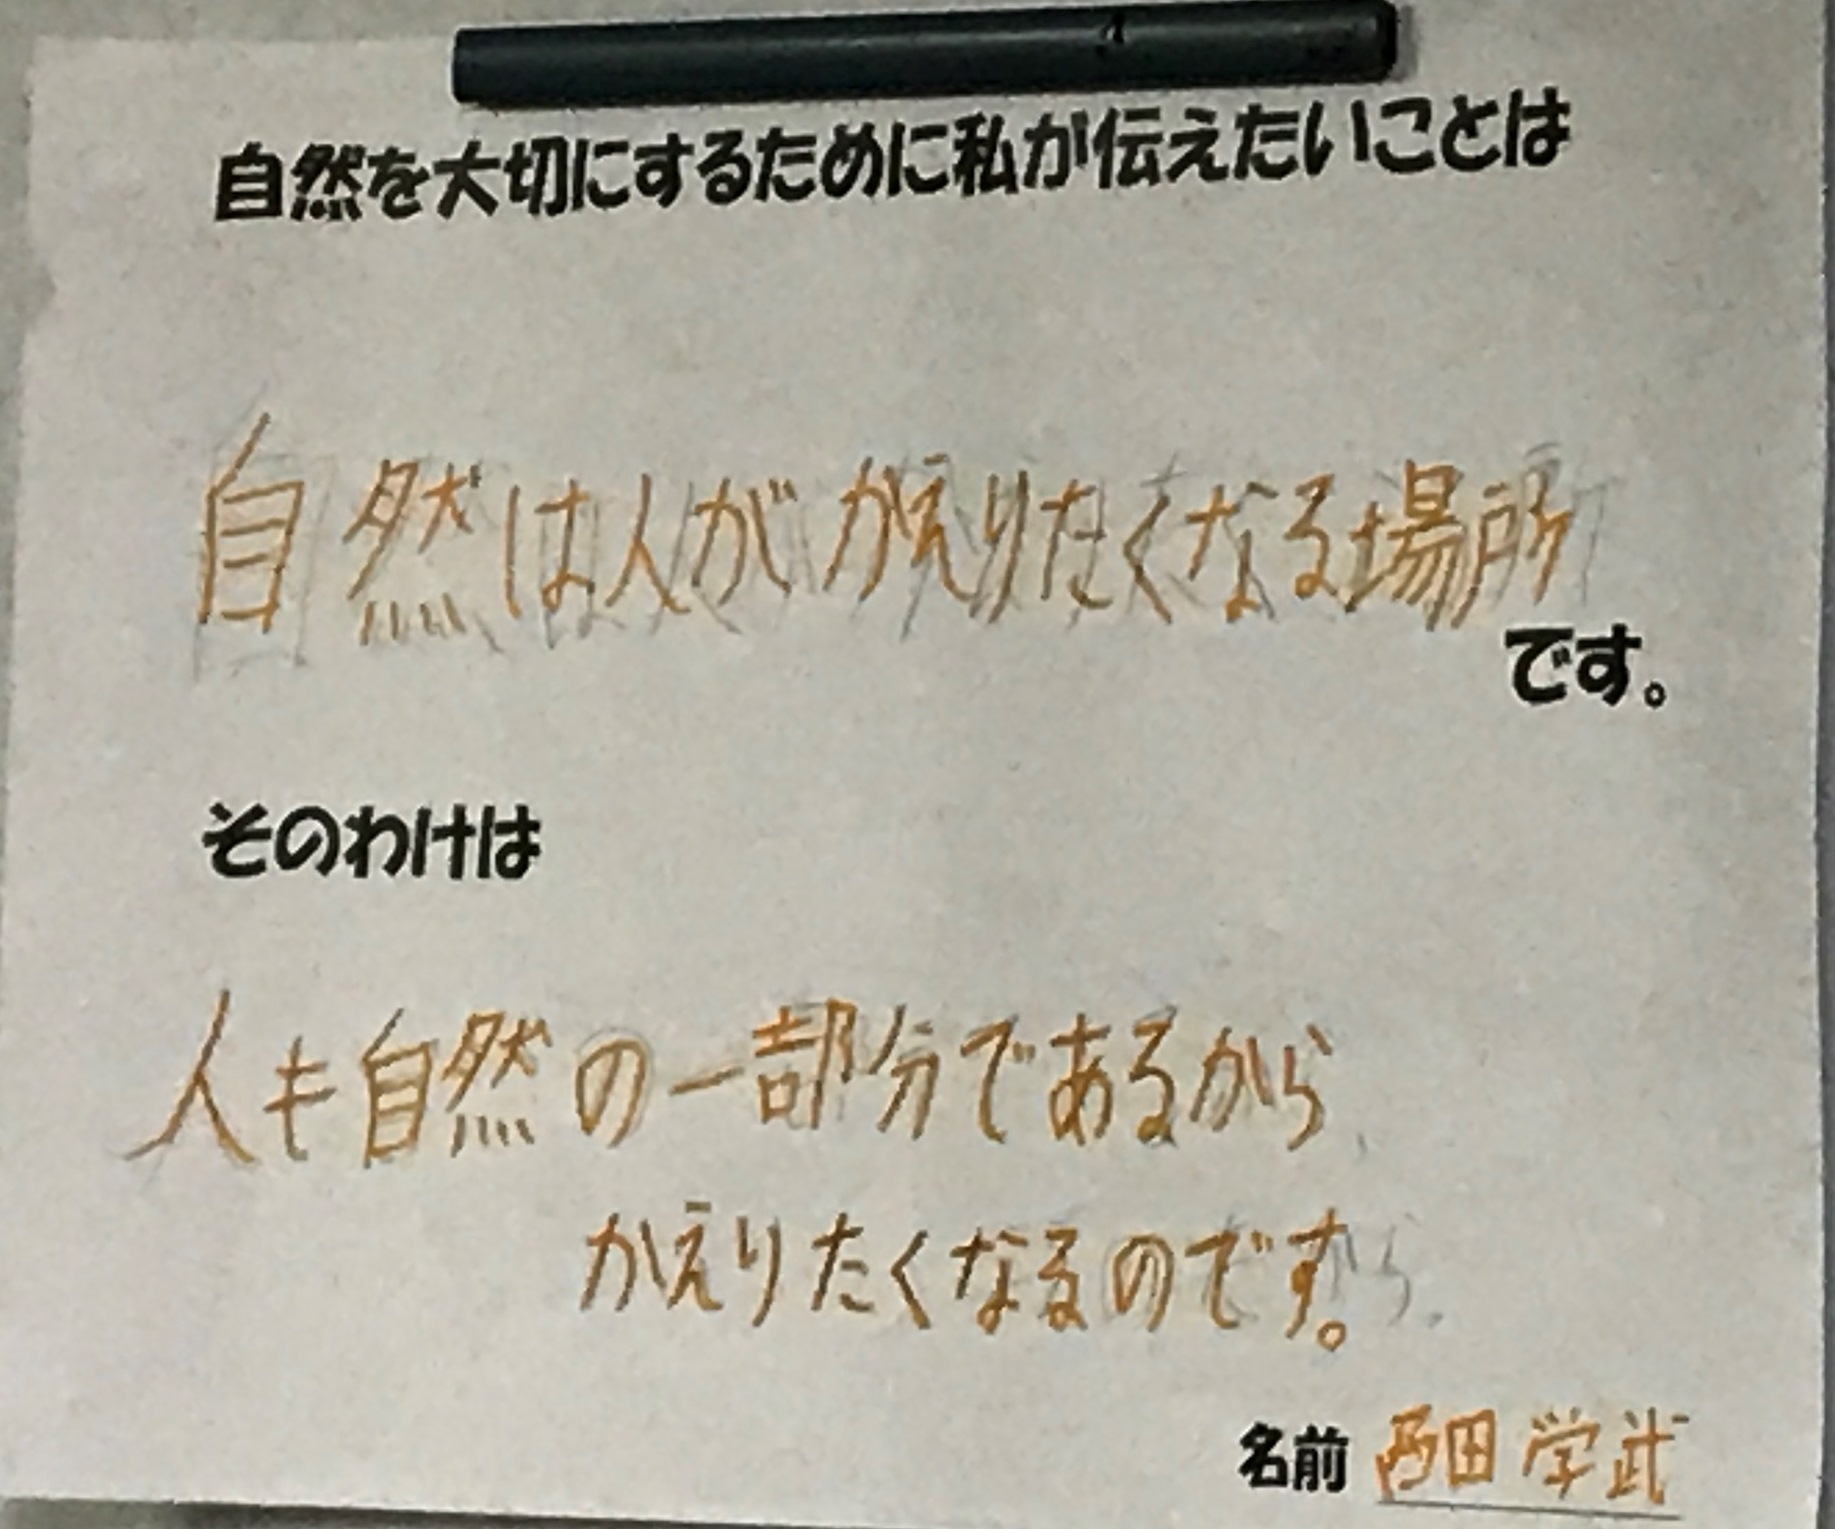 自然を大切にするために私が伝えたいことは
自然は人がかえりたくなる場所
です。
そのわけは
人も自然の一部分であるから
かえりたくなるのです。
名前 西田 学武